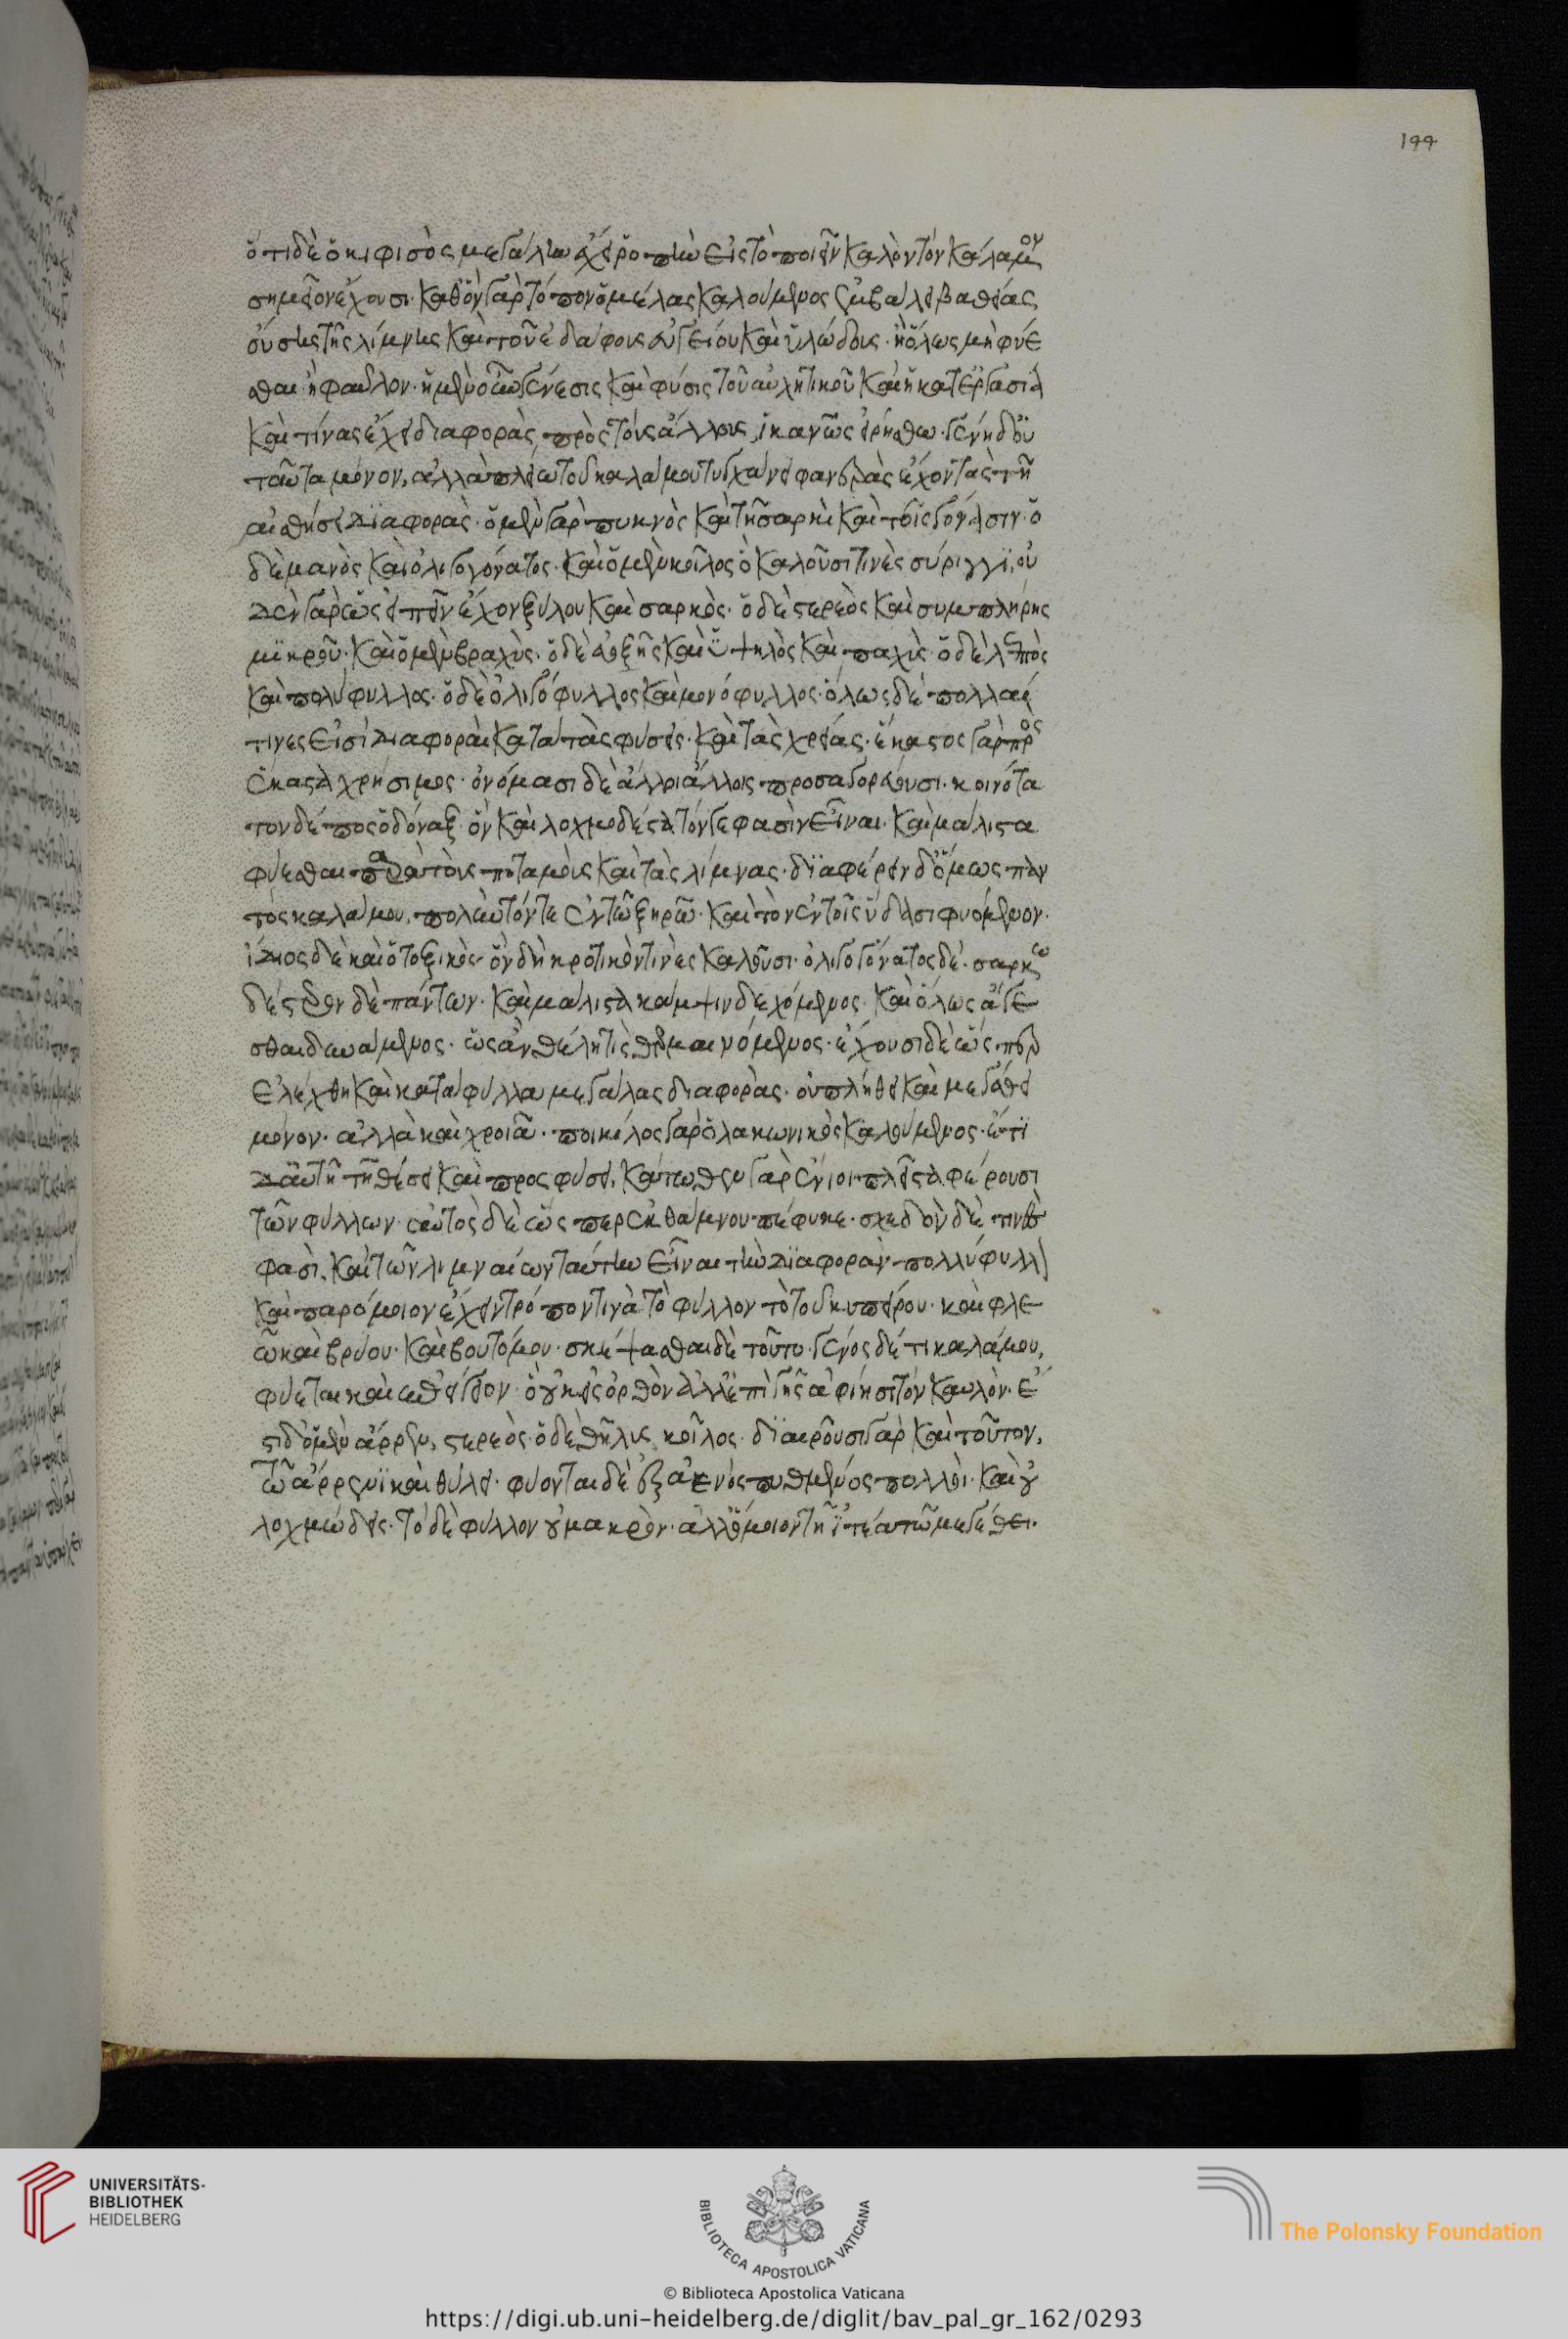 144
ὅτι δὲ ὁ κιφισὸς μεγάλην ἔχει ῥοπὴν εἰς τὸ ποιεῖν καλὸν τὸν κάλαμον
σημεῖον ἔχουσι· καθ' ὃν γὰρ τόπον ὁ μέλας καλούμενος ἐμβάλει βαθείας
οὔσης τῆς λίμνης καὶ τοῦ ἐδάφους εὐγείου καὶ ἰλώδους· ἢ ὅλως μὴ φύε
σθαι ἢ φαῦλον· ἡ μὲν οὖν γένεσις καὶ φύσις τοῦ αὐλητικοῦ καὶ ἡ κατεργασία
καὶ τίνας ἔχει διαφορὰς πρὸς τοὺς ἄλλους, ἱκανῶς εἰρήσθω· γένη δ' οὐ
ταῦτα μόνον, ἀλλὰ πλείω τοῦ καλάμου τυγχάνει φανερὰς ἔχοντα τῇ
αἰσθήσει διαφορὰς· ὁ μὲν γὰρ πυκνὸς καὶ τῇ σαρκὶ καὶ τοῖς γόνασιν· ὁ
δὲ μανὸς καὶ ὀλιγογόνατος· καὶ ὁ μὲν κοῖλος ὃ καλοῦσί τινες σύριγγι, οὐ
δὲν γὰρ ὡς εἰπεῖν ἔχον ξύλου καὶ σαρκὸς· ὁ δὲ στερεὸς καὶ συμπλήρης
μικροῦ· καὶ ὁ μὲν βραχὺς· ὁ δὲ αὐξὴς καὶ ὑψηλὸς καὶ παχὺς· ὁ δὲ λεπτὸς
καὶ πολύφυλλος· ὁ δὲ ὀλιγόφυλλος καὶ μονόφυλλος· ὅλως δὲ πολλαί
τινες εἰσὶ διαφοραὶ κατὰ τὰς φύσεις· καὶ τὰς χρείας· ἕκαστος γὰρ πρὸς
ἕκαστα χρήσιμος· ὀνόμασι δὲ ἄλλοι ἄλλοις προσαγορεύουσι· κοινότα
τον δέ πως ὁ δόναξ ὃν καὶ λοχμοδέστατόν γε φασὶν εἶναι· καὶ μάλιστα
φύεσθαι παρὰ τοὺς ποταμοὺς καὶ τὰς λίμνας· διαφέρειν δ' ὅμως παν
τὸς καλάμου, πολὺ τόν τε ἐν τῷ ξηρῷ· καὶ τὸν ἐν τοῖς ὕδασι φυόμενον·
ἴδιος δὲ καὶ ὁ τοξικὸς ὃν δὴ κρητικόν τινες καλοῦσι· ὀλιγογόνατος δὲ· σαρκω
δέστερον δὲ πάντων· καὶ μάλιστα κάμψιν δεχόμενος· καὶ ὅλως ἄγε
σθαι δυνάμενος· ὡς ἂν θέλῃ τις θερμαινόμενος· ἔχουσι δὲ ὥσπερ
ἐλέχθη καὶ κατὰ φύλλα μεγάλας διαφορὰς· οὐ πλήθει καὶ μεγέθει
μόνον· ἀλλὰ καὶ χροιᾷ· ποικίλος γὰρ ὁ λακωνικὸς καλούμενος· ἔτι
δ' αὐτῇ τῇ θέσει καὶ προσφύσει, κάτωθεν γὰρ ἔνιοι πλεῖστα φέρουσι
τῶν φύλλων· αὐτὸς δὲ ὥσπερ ἐκ θάμνου πέφυκε· σχεδὸν δέ τινές
φασι, καὶ τῶν λιμναίων ταύτην εἶναι τὴν διαφορὰν πολλύφυλλ
καὶ παρόμοιον ἔχειν τρόπον τινὰ τὸ φύλλον τὸ τοῦ κυπείρου· καὶ φλε
ῶ καὶ βρύου· καὶ βουτόμου· σκέψασθαι δὲ τοῦτο· γένος δέ τι καλάμου,
φύεται καὶ ἐπίγειον· ὃ οὐκ εἰς ὀρθὸν ἀλλ' ἐπὶ γῆς ἀφίησι τὸν καυλὸν· ἔ
στι δ' ὁ μὲν ἄρρεν, στερεὸς· ὁ δὲ θῆλυς, κοῖλος· διαιροῦσι γὰρ καὶ τοῦτον,
τῷ ἄρρενι καὶ θήλει· φύονται δὲ ἐξ ἑνὸς πυθμένος πολλοὶ· καὶ οὐ
λοχμώδεις· τὸ δὲ φύλλον οὐ μακρὸν· ἀλλ' ὅμοιον τῇ ἰτέα τῷ μεγέθει·
UNIVERSITÄTS-
BIBLIOTHEK
HEIDELBERG
BIBLIOTECA APOSTOLICA VATICANA
The Polonsky Foundation
© Biblioteca Apostolica Vaticana
https://digi.ub.uni-heidelberg.de/diglit/bav_pal_gr_162/0293